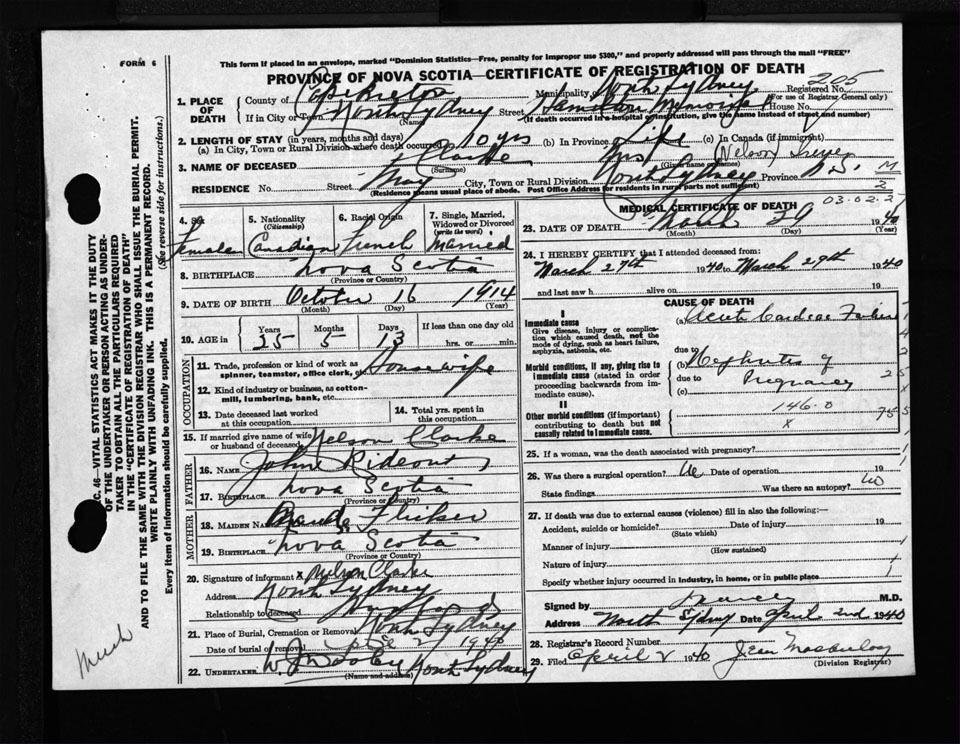 FORM 6
This form if placed in an envelope, marked "Dominion Statistics—Free, penalty for improper use $300," and properly addressed will pass through the mail "FREE"
PROVINCE OF NOVA SCOTIA—CERTIFICATE OF REGISTRATION OF DEATH
205
1. PLACE OF DEATH County of Cape Breton Municipality North Sydney Registered No.
(For use of Registrar General only)
If in City or Town North Sydney Street Hamilton Memorial House No.
(Name) (If death occurred in a hospital or institution, give the name instead of street and number)
2. LENGTH OF STAY (in years, months and days)
(a) In City, Town or Rural Division where death occurred 10 yrs (b) In Province Life (c) In Canada (if immigrant)
3. NAME OF DECEASED Clarke Mrs (Nelson)
(Surname) (Given name or names)
RESIDENCE No. Street City, Town or Rural Division North Sydney Province N.S.
(Residence means usual place of abode. Post Office Address for residents in rural parts not sufficient)
M
2
03.02.2
4. Sex Female
5. Nationality (Citizenship) Canadian
6. Racial Origin French
7. Single, Married, Widowed or Divorced (write the word) Married
8. BIRTHPLACE Nova Scotia
(Province or Country)
9. DATE OF BIRTH October 16 1914
(Month) (Day) (Year)
10. AGE in Years 25 Months 5 Days 13 If less than one day old hrs. or min.
OCCUPATION
11. Trade, profession or kind of work as spinner, teamster, office clerk, etc. Housewife
12. Kind of industry or business, as cotton-mill, lumbering, bank, etc.
13. Date deceased last worked at this occupation
14. Total yrs. spent in this occupation
15. If married give name of wife or husband of deceased Nelson Clarke
FATHER
16. NAME John Rideout
17. BIRTHPLACE Nova Scotia
(Province or Country)
MOTHER
18. MAIDEN NAME Maude
19. BIRTHPLACE Nova Scotia
(Province or Country)
20. Signature of informant x Nelson Clarke
Address North Sydney
Relationship to deceased Husband
21. Place of Burial, Cremation or Removal North Sydney
Date of burial or removal 1940
22. UNDERTAKER North Sydney
(Name and address)
MEDICAL CERTIFICATE OF DEATH
23. DATE OF DEATH March 29 1940
(Month) (Day) (Year)
24. I HEREBY CERTIFY that I attended deceased from:
March 27th 1940 to March 29th 1940
and last saw h alive on 19
CAUSE OF DEATH
I
Immediate cause
Give disease, injury or complication which caused death, not the mode of dying, such as heart failure, asphyxia, asthenia, etc.
(a) Acute Cardiac Failure
due to
Morbid conditions, if any, giving rise to immediate cause (stated in order proceeding backwards from immediate cause).
(b) Nephritis of
due to Pregnancy
(c)
II
Other morbid conditions (if important) contributing to death but not causally related to immediate cause.
146.0
x
25. If a woman, was the death associated with pregnancy?
26. Was there a surgical operation? Date of operation 19
State findings Was there an autopsy?
27. If death was due to external causes (violence) fill in also the following:—
Accident, suicide or homicide? Date of injury 19
(State which)
Manner of injury
(How sustained)
Nature of injury
Specify whether injury occurred in industry, in home, or in public place
Signed by M.D.
Address North Sydney Date April 2nd 1940
28. Registrar's Record Number
29. Filed April 2 1940 Jean
(Division Registrar)
C. 46—VITAL STATISTICS ACT MAKES IT THE DUTY
OF THE UNDERTAKER OR PERSON ACTING AS UNDER-
TAKER TO OBTAIN ALL THE PARTICULARS REQUIRED
IN THE "CERTIFICATE OF REGISTRATION OF DEATH"
AND TO FILE THE SAME WITH THE DIVISION REGISTRAR WHO SHALL ISSUE THE BURIAL PERMIT.
WRITE PLAINLY WITH UNFADING INK. THIS IS A PERMANENT RECORD.
(See reverse side for instructions.)
Every item of information should be carefully supplied.